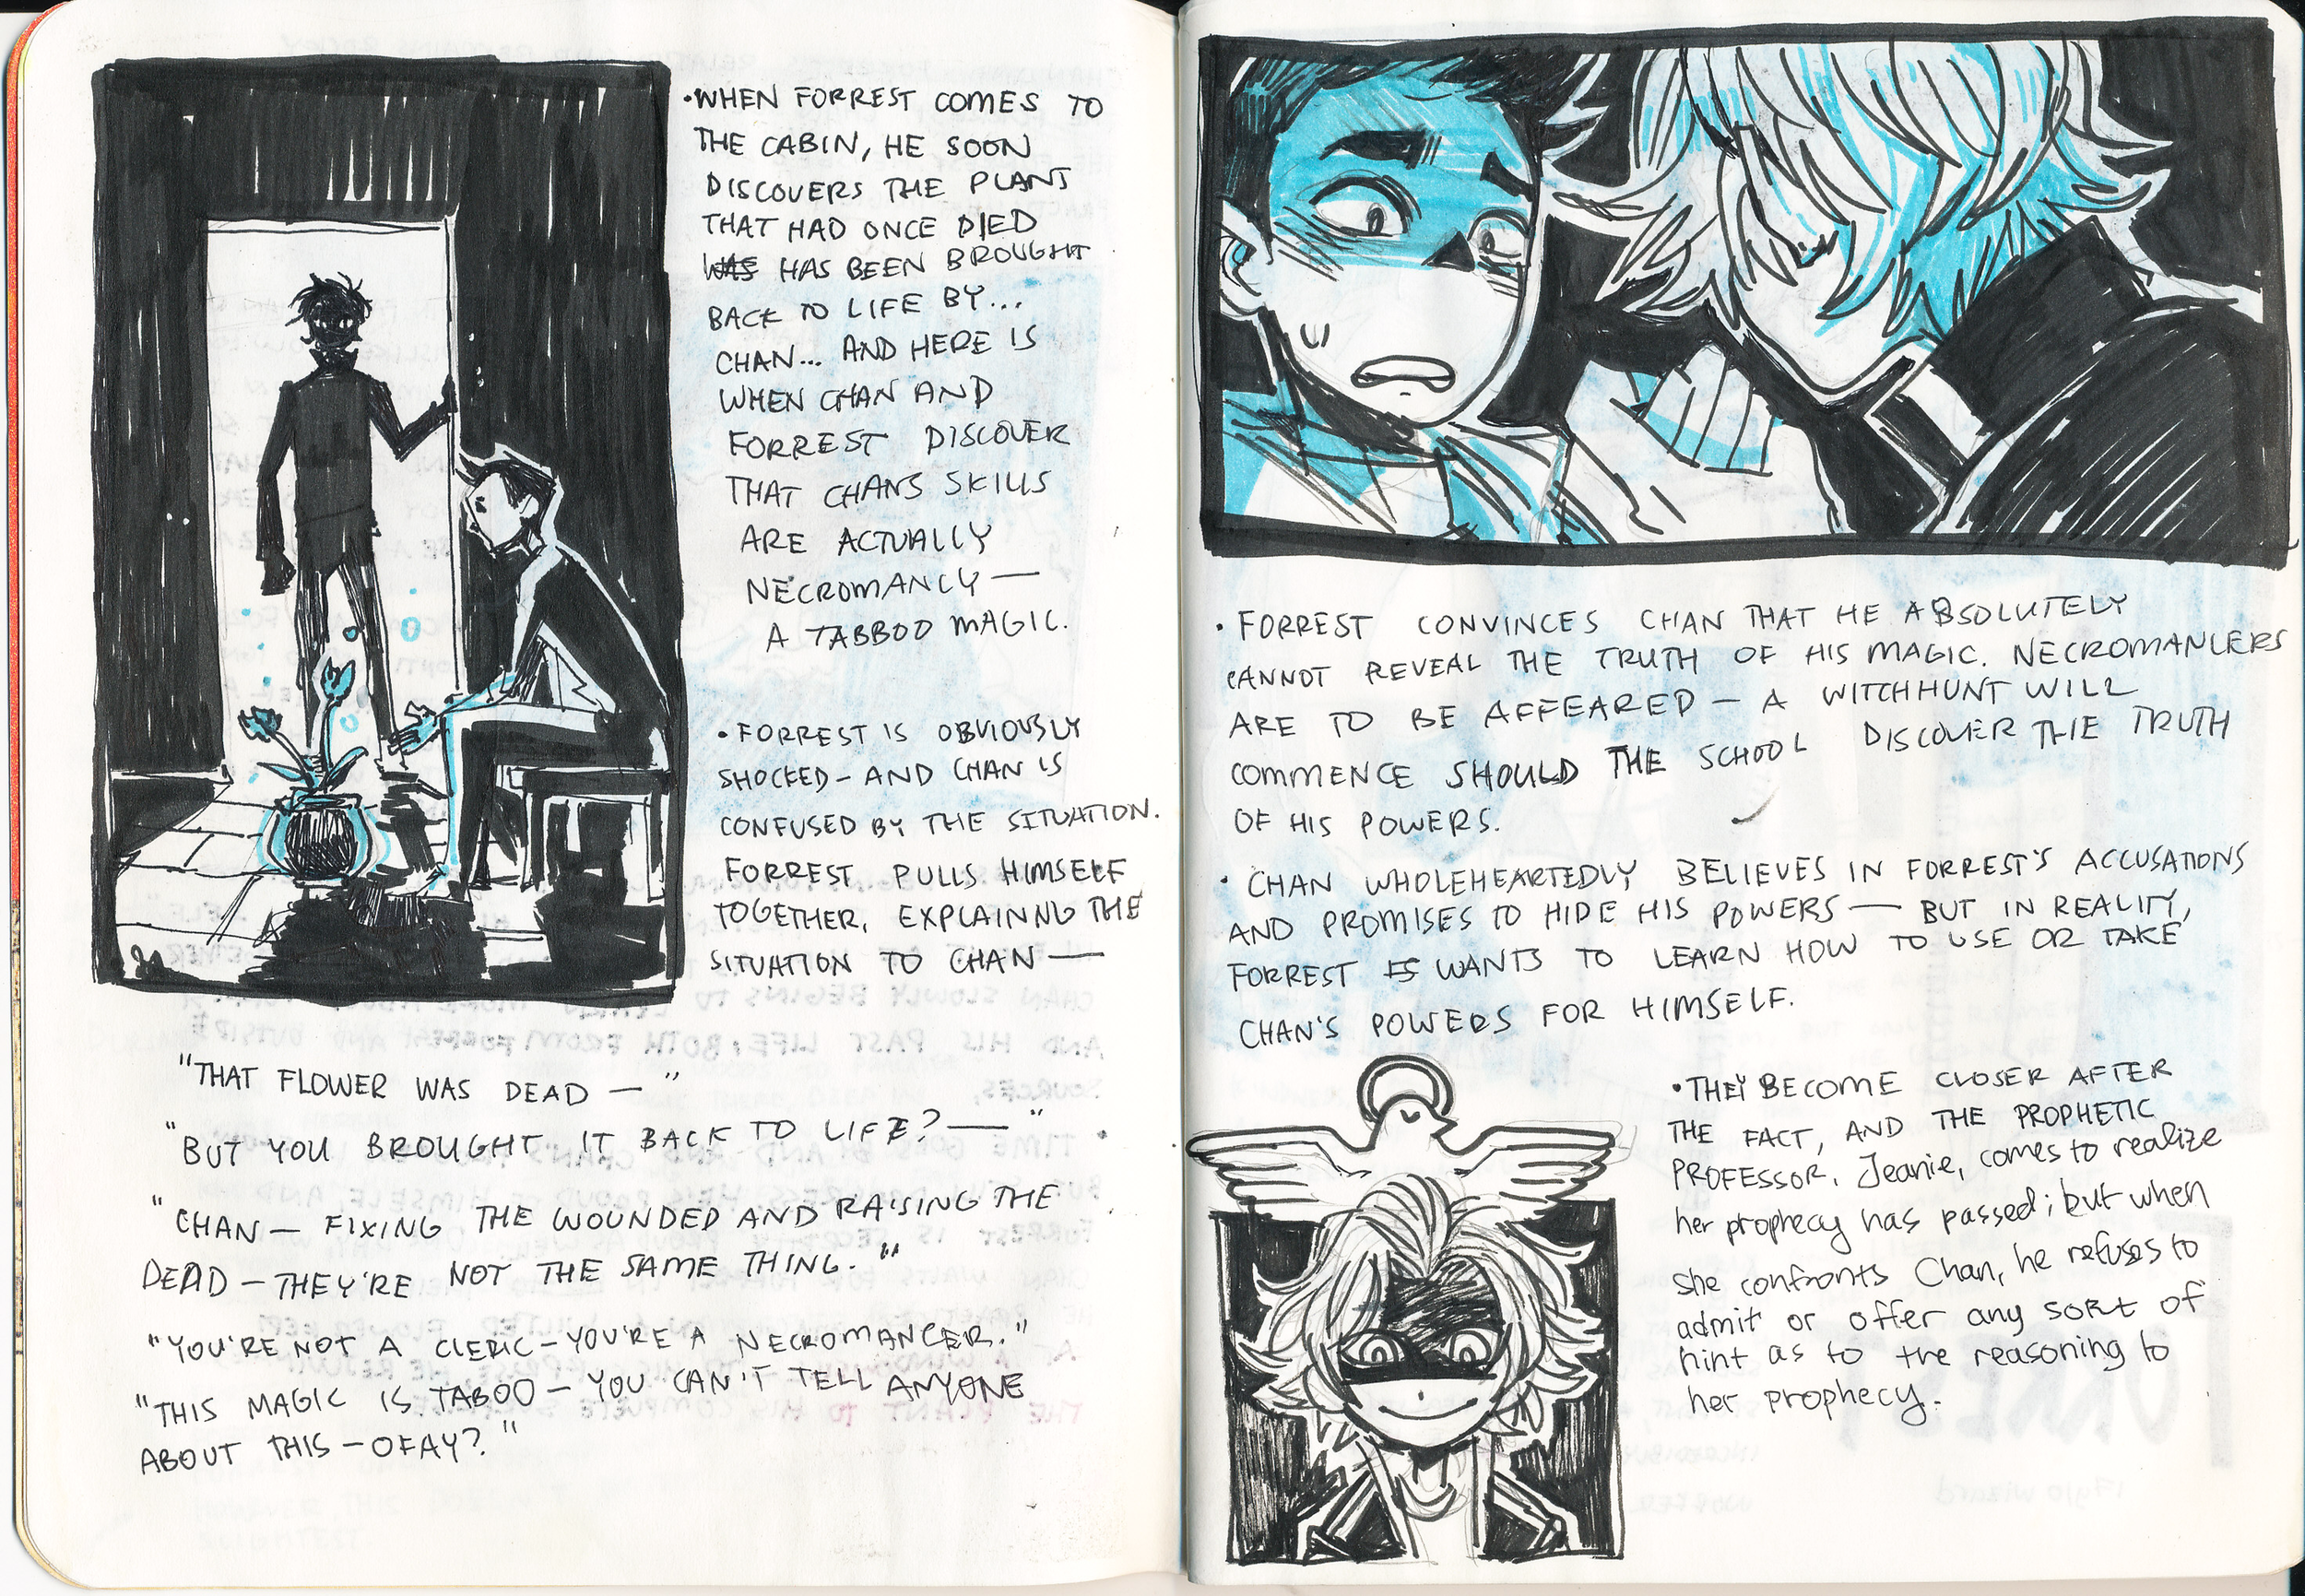 •WHEN FORREST COMES TO
THE CABIN, HE SOON
DISCOVERS THE PLANT
THAT HAD ONCE DIED
WAS HAS BEEN BROUGHT
BACK TO LIFE BY...
CHAN... AND HERE IS
WHEN CHAN AND
FORREST DISCOVER
THAT CHANS SKILLS
ARE ACTUALLY
NECROMANCY —
A TABBOO MAGIC.
•FORREST IS OBVIOUSLY
SHOCKED – AND CHAN IS
CONFUSED BY THE SITUATION.
FORREST PULLS HIMSELF
TOGETHER, EXPLAINNG THE
SITUATION TO CHAN —
"THAT FLOWER WAS DEAD — "
"BUT YOU BROUGHT IT BACK TO LIFE? — "
"CHAN — FIXING THE WOUNDED AND RAISING THE
DEAD – THEY'RE NOT THE SAME THING."
"YOU'RE NOT A CLERIC – YOU'RE A NECROMANCER."
"THIS MAGIC IS TABOO – YOU CAN'T TELL ANYONE
ABOUT THIS – OKAY?"
• FORREST CONVINCES CHAN THAT HE ABSOLUTELY
CANNOT REVEAL THE TRUTH OF HIS MAGIC. NECROMANCERS
ARE TO BE AFFEARED – A WITCHHUNT WILL
COMMENCE SHOULD THE SCHOOL DISCOVER THE TRUTH
OF HIS POWERS.
• CHAN WHOLEHEARTEDLY BELIEVES IN FORREST'S ACCUSATIONS
AND PROMISES TO HIDE HIS POWERS — BUT IN REALITY,
FORREST IS WANTS TO LEARN HOW TO USE OR TAKE
CHAN'S POWERS FOR HIMSELF.
•THEY BECOME CLOSER AFTER
THE FACT, AND THE PROPHETIC
PROFESSOR, Jeanie, comes to realize
her prophecy has passed; but when
she confronts Chan, he refuses to
admit or offer any sort of
hint as to the reasoning to
her prophecy.